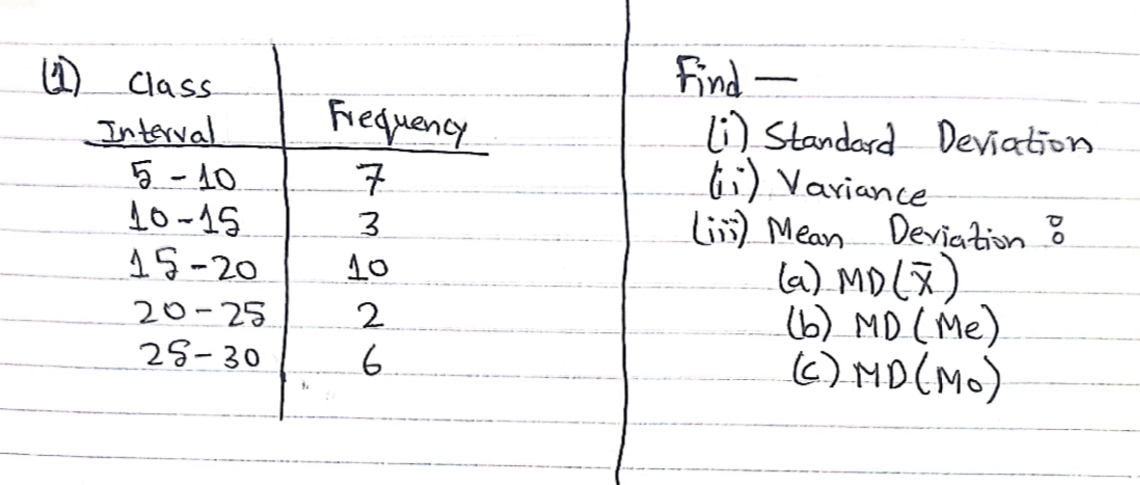 (1) Class Interval | Frequency
5 - 10 | 7
10 - 15 | 3
15 - 20 | 10
20 - 25 | 2
25 - 30 | 6
Find —
(i) Standard Deviation
(ii) Variance
(iii) Mean Deviation :
(a) MD (x̄)
(b) MD (Me)
(c) MD (Mo)